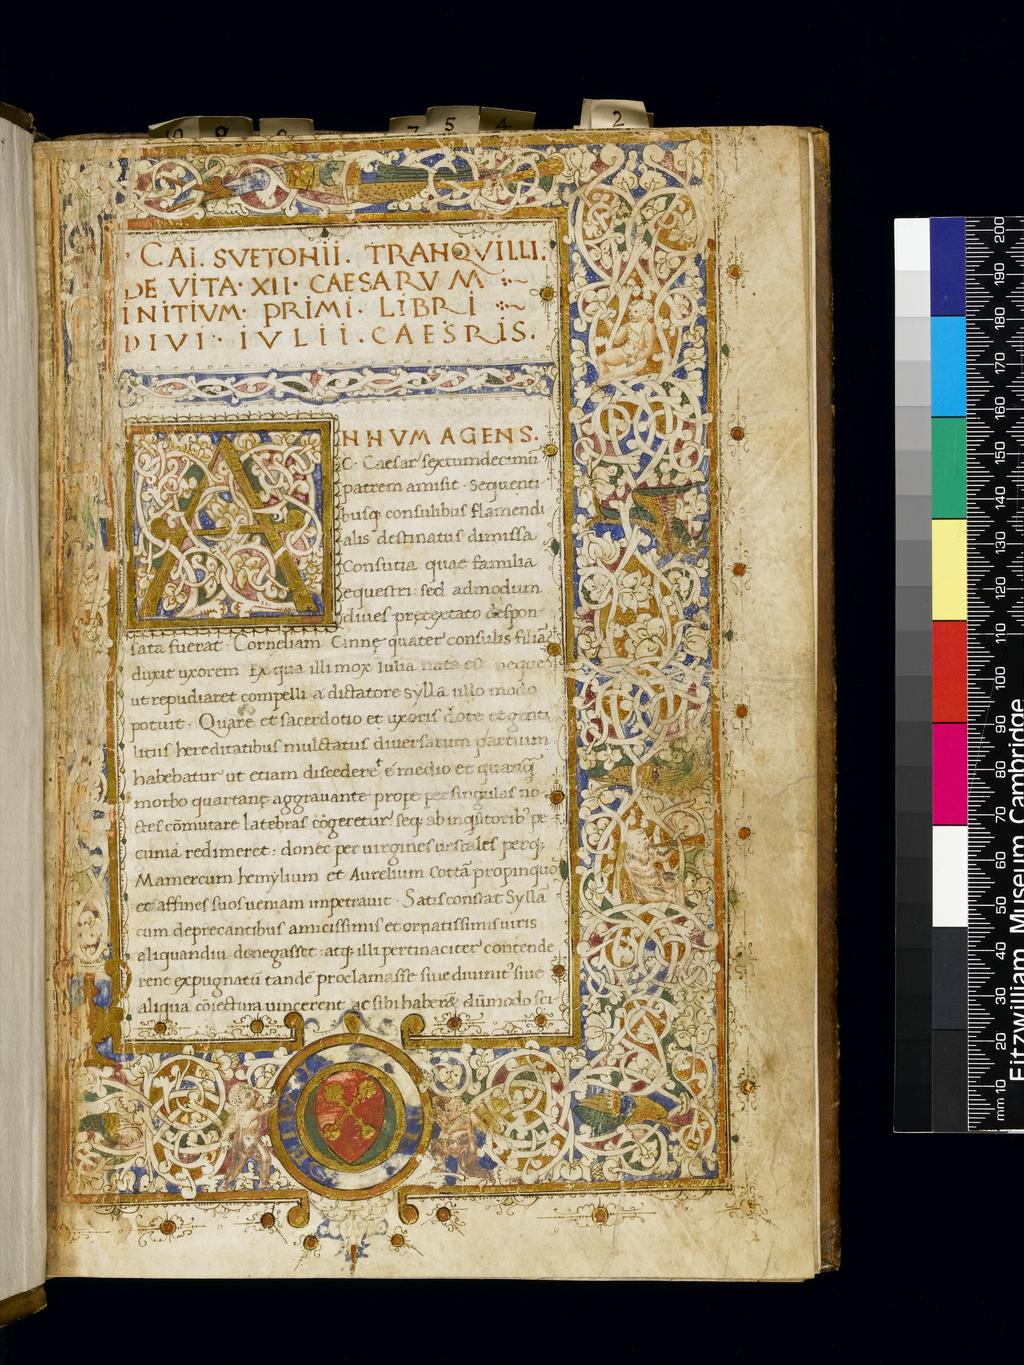 10 9 8 7 5 4 2
CAI. SVETONII. TRANQVILLI.
DE VITA· XII· CAESARVM
INITIVM· PRIMI· LIBRI
DIVI· IVLII. CAESRIS.
ANNVM AGENS.
C· Caesar sextumdecimū
patrem amisit· Sequenti
busq; consulibus flamendi
alis destinatus dimissa
Consutia quae familia
equestri sed admodum
diues pręextato despon
sata fuerat· Corneliam Cinnę quater consulis filiā
duxit uxorem Ex qua illi mox Iulia nata est neque
ut repudiaret compelli a dictatore sylla ullo modo
potuit· Quare et sacerdotio et uxoris dote et genti
litiis hereditatibus mulctatus diuersarum partium
habebatur ut etiam discedere é medio et quanq̄
morbo quartanę aggrauante prope per singulas no
ctes cōmutare latebras cogeretur seq; ab inqsitorib' pe
cunia redimeret: donec per uirgines uestales perq;
Mamercum hemylium et Aurelium Cottā propinquo
et affines suos ueniam impetrauit· Satis constat Syllā
cum deprecantibus amicissimis et ornatissimis uiris
aliquandiu denegasset atq; illi pertinaciter contende
rent expugnatū tandē proclamasse siue diuinit' siue
aliqua cōiectura uincerent ac sibi haberēt dūmodo sci
mm 10 20 30 40 50 60 70 80 90 100 110 120 130 140 150 160 170 180 190 200
Fitzwilliam Museum Cambridge